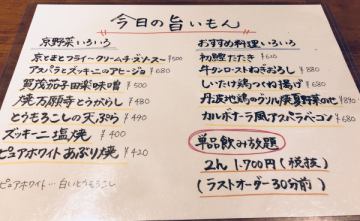 今日の旨いもん
京野菜いろいろ
京とまとフライ〜クリームチーズソース〜 ¥500
アスパラとズッキーニのアヒージョ ¥680
賀茂茄子田楽味噌 ¥500
焼万願寺とうがらし ¥480
とうもろこしの天ぷら ¥490
ズッキーニ塩焼 ¥400
ピュアホワイトあぶり焼 ¥420
ピュアホワイト…白いとうもろこし
おすすめ料理いろいろ
初鰹たたき ¥610
牛タンローストねぎおろし ¥880
しいたけ鶏つくね揚げ ¥680
丹波地鶏のグリル焼夏野菜の
カルボナーラ風アスパラベーコン ¥680
単品飲み放題
2h 1.700円(税抜)
(ラストオーダー30分前)